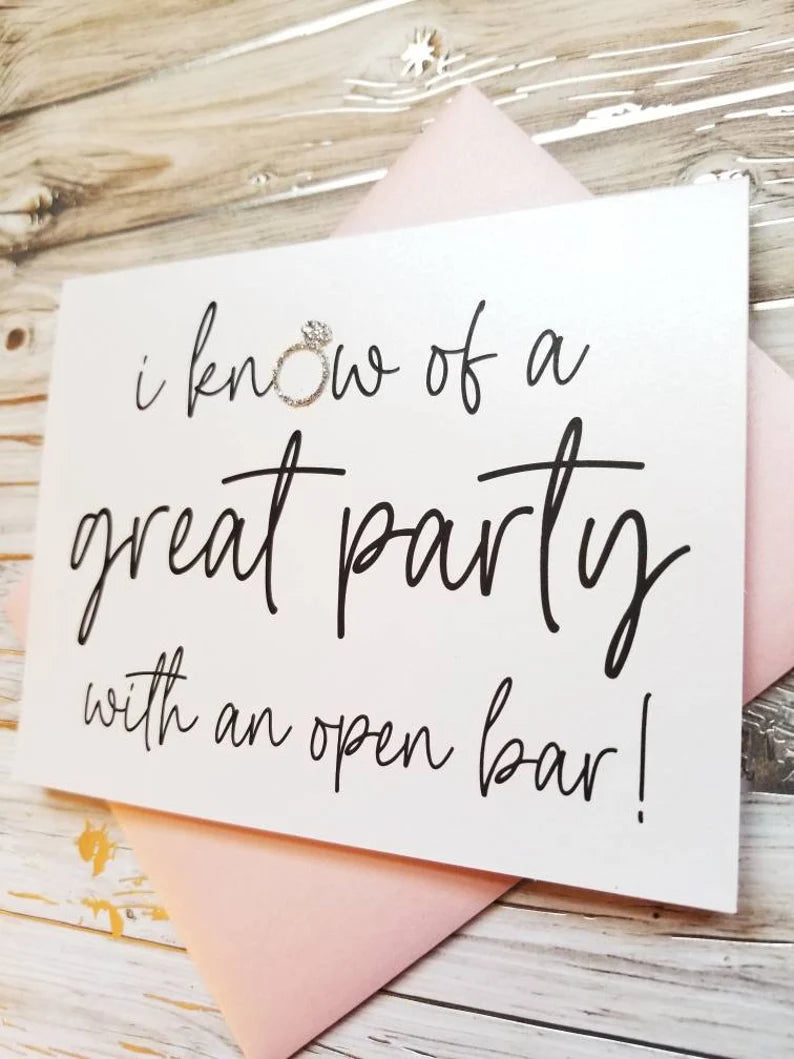 i know of a
great party
with an open bar!